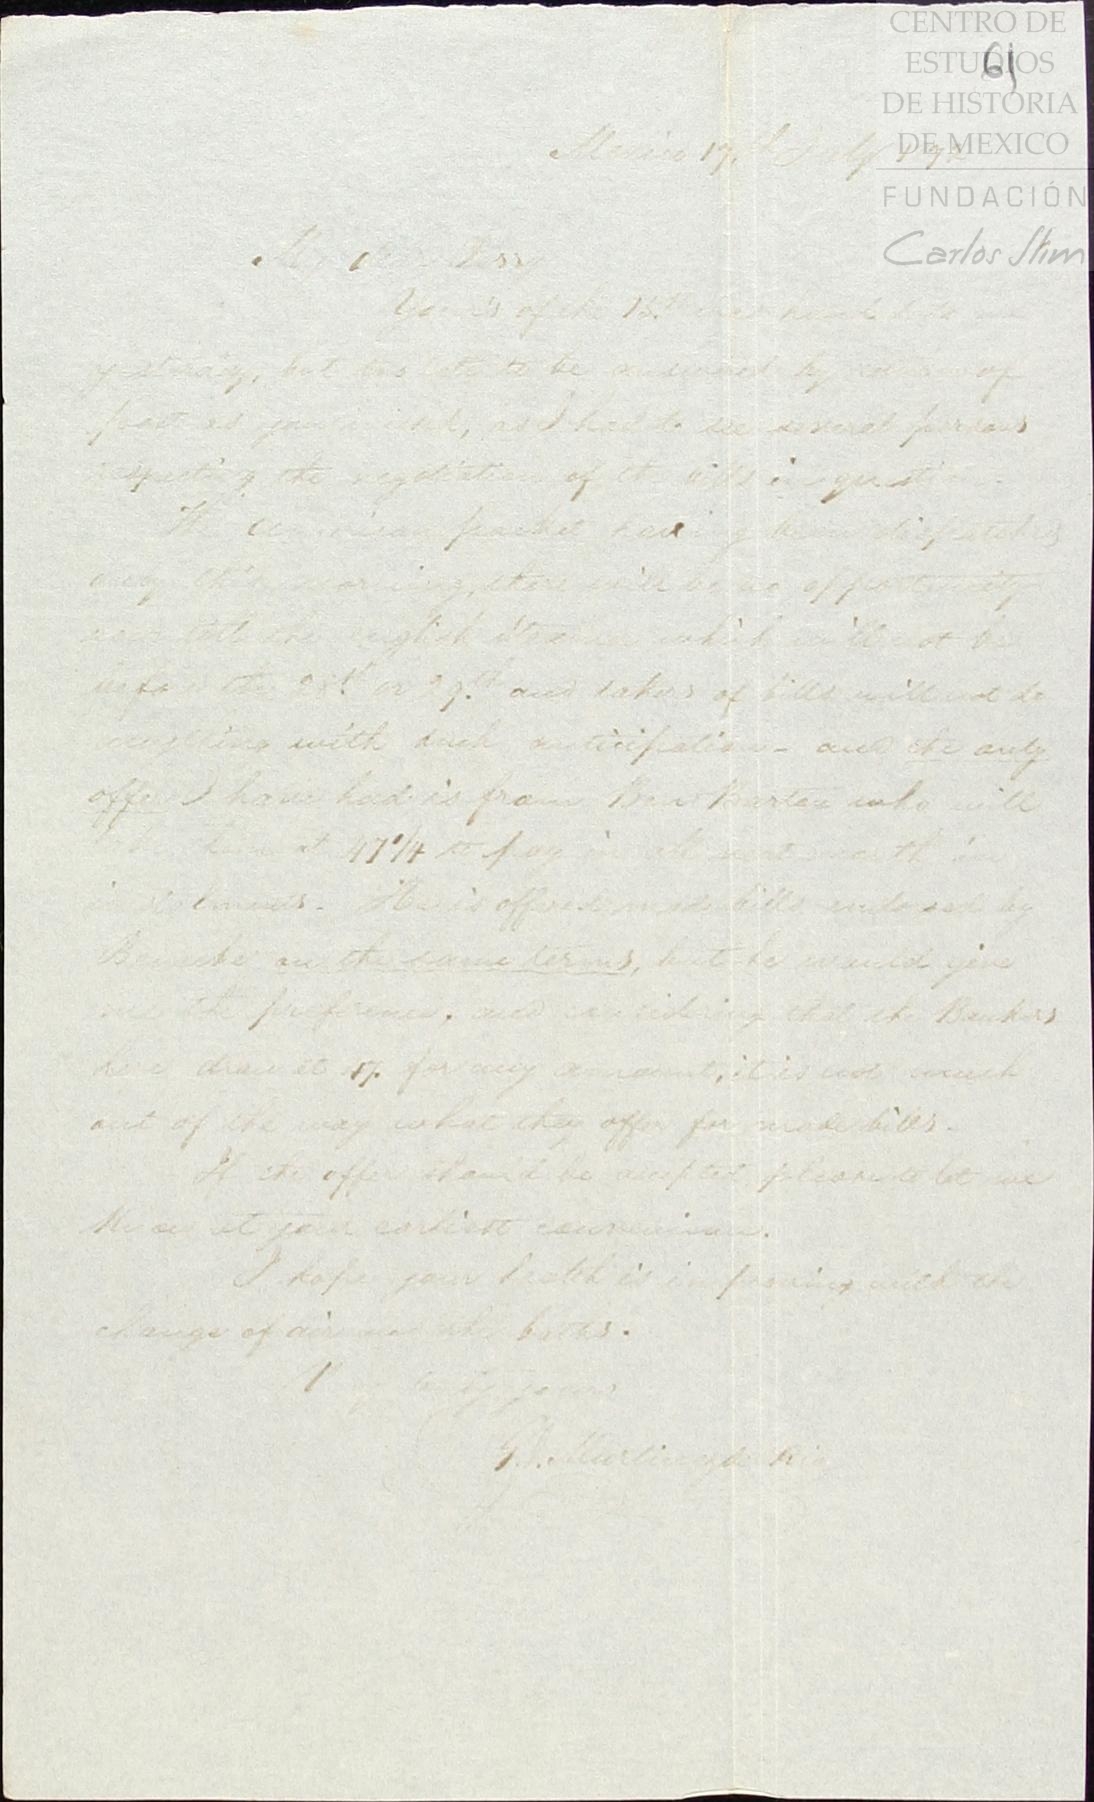 CENTRO DE
ESTUDIOS
DE HISTORIA
DE MEXICO
FUNDACIÓN
Carlos Slim
61
Mexico 17th July
My dear Sir
Yours of the 15th was handed to me
yesterday, but too late to be answered by return of
post as you wish, as I had to see several persons
respecting the negotiation of the bills in question.
The American packet having been dispatched
only this morning, there will be no opportunity
now till the english steamer which will not be
before the 28th or 29th and takers of bills will not do
anything with such anticipation - and the only
offer I have had is from who will
take them at 47 1/4 to pay in all next month in
instalments. He is offered made bills endorsed by
Benecke on the same terms, but he would give
me the preference, and considering that the Bankers
here draw at 47. for any amount, it is not much
out of the way what they offer for made bills.
If the offer should be accepted please to let me
know at your earliest convenience.
I hope your health is improving with the
change of air and the baths.
Very truly yours
Martinez del Rio